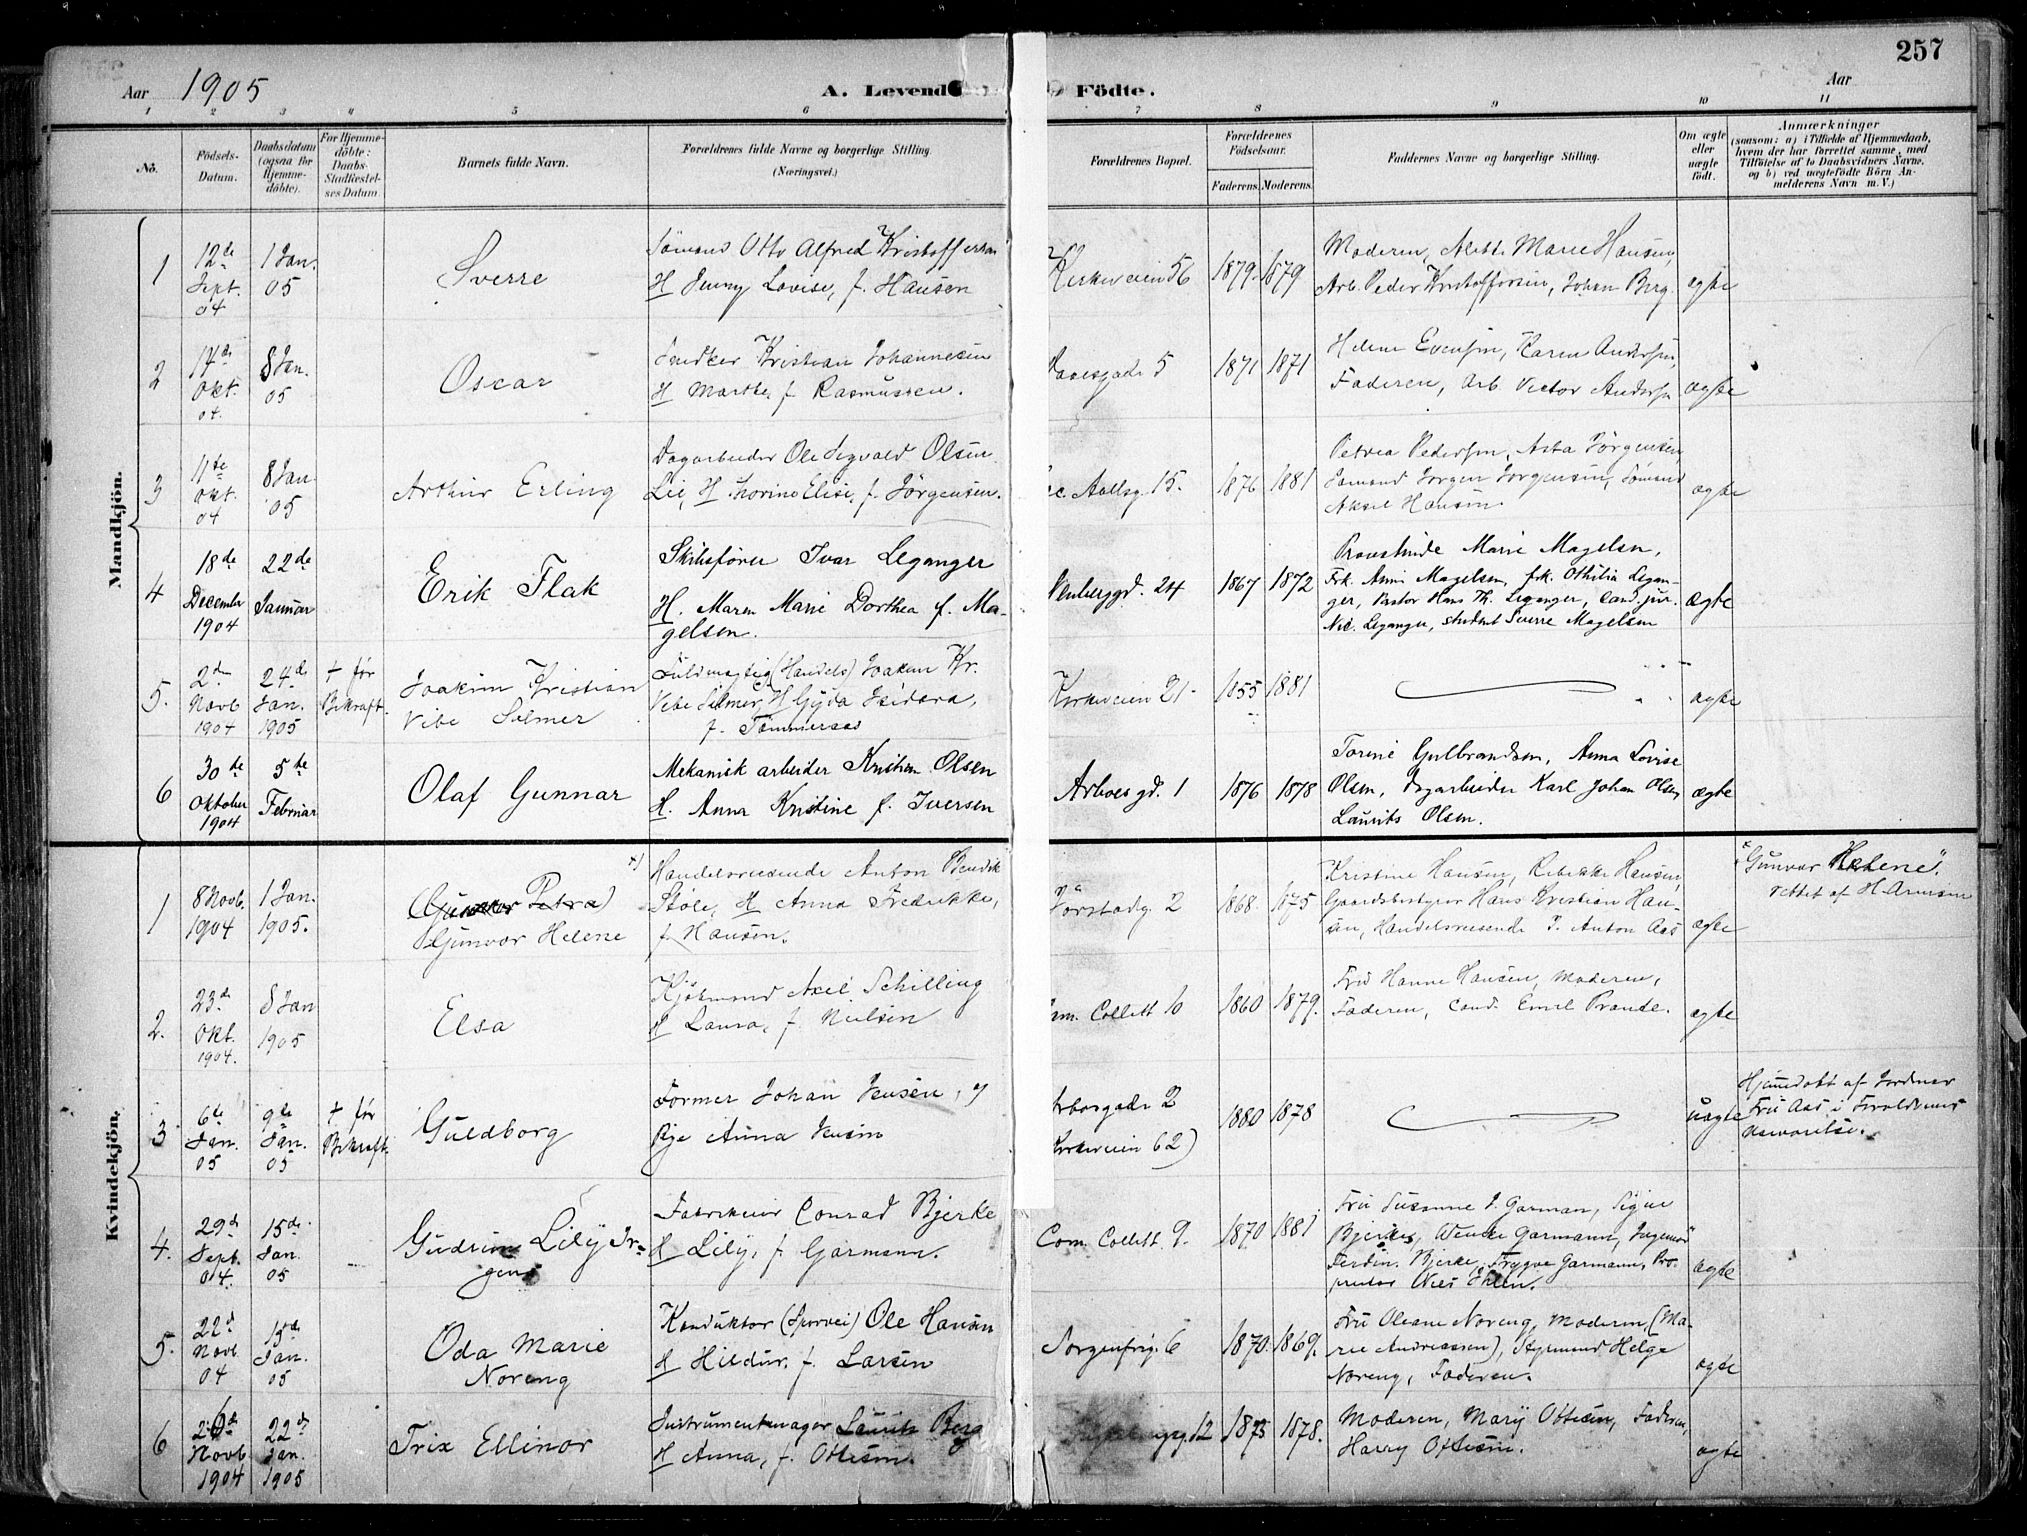 257
Aar 1905
A. Levende Födte.
Aar
1 2 3 4 5 6 7 8 9 10 11
No.
Födsels-Datum.
Daabsdatum (ogsaa for Hjemme-döbte).
For Hjemme-döbte: Daabs-Stadfæstel-ses Datum.
Barnets fulde Navn.
Forældrenes fulde Navne og borgerlige Stilling.
(Næringsvei.)
Forældrenes Bopæl.
Forældrenes Födselsaar.
Faderens. Moderens.
Faddernes Navne og borgerlige Stilling.
Om ægte eller uægte født.
Anmærkninger
(saasom: a) i Tilfælde af Hjemmedaab,
hvem der har forrettet samme, med
Tilföielse af to Daabsvidners Navne.
og b) ved uægtefödte Börn An-
melderens Navn m. V.)
Mandkjön.
1
12de Sept. 04
1 Jan. 05
Sverre
Sømand Otto Alfred Kristoffersen
H Jenny Lovise, f. Hansen
Kirkeveien 56
1879. 1879
Moderen, Marie Hansen,
Arb. Peder Kristoffersen, Johan Berg.
ægte
2
14de Okt. 04.
8 Jan. 05
Oscar
Snedker Kristian Johannesen
H Marthe, f. Rasmussen.
5
1871 1871
Helene Evensen, Karen Andersen,
Faderen, Arb. Victor Andersen
ægte
3
11te Okt. 04
8 Jan. 05
Arthur Erling
Dagarbeider Ole Sigvald Olsen
Lie, H Thorine Elise, f. Jörgensen.
Aallsg. 15.
1876 1881
Petrea Pedersen, Asta Jörgensen,
Sømand Jorgen Jorgensen, Sømand
Aksel Hansen
ægte
4
18de December 1904
22de Januar
Erik Flak
Skibsfører Ivar Leganger
H. Maren Marie Dorthea f. Ma-
gelsen.
24
1867 1872
Provstinde Marie Magelsen,
Frk. Anni Magelsen, frk. Othilia Legan-
ger, Pastor Hans Th. Leganger, Cand. jur.
Nic. Leganger, student Sverre Magelsen
ægte
5.
2den Novb 1904
24de Jan. 1905
+ før Bekræft.
Joakim Kristian
Vibe Selmer
Fuldmægtig (Handels) Joakim Kr.
Vibe Selmer, H Gyda Isidora,
f. Tømmeraas
Kirkeveien 21
1855 1881
ægte
6
30te Oktober 1904
5te Februar
Olaf Gunnar
Mekanisk arbeider Kristian Olsen
H. Anna Kristine f. Iversen
Arboes gd. 1
1876 1878
Torine Gulbrandsen, Anna Lovise
Olsen, Dagarbeider Karl Johan Olsen
Laurits Olsen.
ægte
Kvindekjön.
1
8 Novb. 1904
1 Jan. 1905.
(Gunvor Petra) x)
Gunvor Helene
Handelsreisende Anton Bendik
Støle, H Anna Fredrikke,
f. Hansen.
Jörstadg. 2
1868. 1875
Kristine Hansen, Rebekke Hansen,
Gaardsbestyrer Hans Kristian Han-
sen, Handelsreisende P. Anton Aas
ægte
"Gunvor Helene".
rettet af H. Arnesen
2.
23de Okt. 1904.
8 Jan 1905
Elsa
Kjøbmand Axel Schilling
H Laura, f. Nielsen
Cam. Collett 10
1860 1879.
Fru Hanne Hansen, Moderen,
Faderen, Cand. Emil Prande.
ægte
3
6te Jan. 05
9de Jan. 05
+ før Bekræft.
Guldborg
Former Johan Jensen, og
Pige Anna Jensen
Arboesgade 2
Kirkeveien 62)
1880 1878
uægte
Hjemmedøbt af Jordmor
Fru Aas i Forældrenes
Nærværelse.
4.
29de Sept. 04.
15de Jan. 05
Gudrun Lily Jr-
gens
Fabrikeier Conrad Bjerke
H Lily, f. Garmann.
Cam. Collett 9.
1870 1881
Fru Susanne J. Garman, Signe
Bjerke, Wenke Garmann, Ingeniør
Ferdin. Bjerke, Trygve Garmann, Pro-
prietær Nies Ihlen.
ægte
5.
22de Novb 04
15de Jan. 05
Oda Marie
Noreng
Konduktør (Sporvei) Ole Hansen
H Hildur, f. Larsen
Sorgenfrig. 6
1870. 1869.
Fru Oleane Noreng, Moderen, (Ma-
rie Andreassen), Styrmand Helge
Noreng, Faderen.
ægte
6
26de Novb 1904
22de Jan. 1905
Trix Ellinor
Instrumentmager Laurits Berg
H Anna, f. Ottesen.
12
1875 1878.
Moderen, Mary Ottesen, Faderen,
Harry Ottesen.
ægte